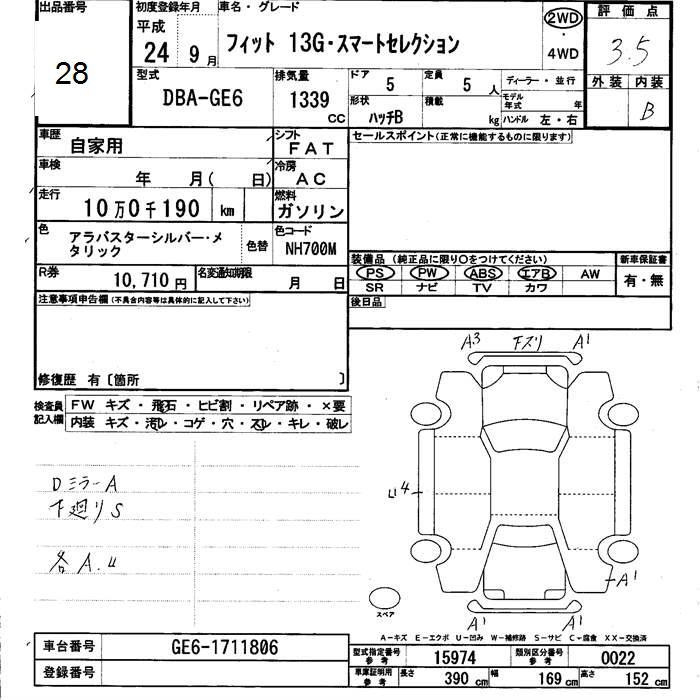 出品番号 初度登録年月 車名・グレード 評価点
平成
28 24年 9月 フィット 13G・スマートセレクション 2WD・4WD 3.5
型式 排気量 ドア 定員 ディーラー・並行 外装 内装
DBA-GE6 1339cc 5 5人
形状 積載 モデル年式 年
ハッチB kg ハンドル 左・右 B
車歴 自家用 シフト FAT セールスポイント(正常に機能するものに限ります)
車検 年 月( 日) 冷房 AC
走行 10万0千190 km 燃料 ガソリン
色 アラバスターシルバー・メタリック 色替 色コード NH700M
装備品(純正品に限り○をつけてください) 新車保証書
R券 10,710円 名変通知期限 月 日 PS PW ABS エアB AW 有・無
SR ナビ TV カワ
注意事項申告欄(不具合内容等は具体的に記入して下さい) 後日品
修復歴 有〔箇所 〕
A3 下ズリ A1
検査員記入欄 FW キズ・飛石・ヒビ割・リペア跡・×要
内装 キズ・汚レ・コゲ・穴・スレ・キレ・破レ
DミラーA
下廻りS
4
各A.U
A1
スペア
A1 A1
A-キズ E-エクボ U-凹み W-補修跡 S-サビ C-腐食 XX-交換済
車台番号 GE6-1711806 型式指定番号 参考 15974 類別区分番号 参考 0022
登録番号 車庫証明用 参考 長さ 390cm 幅 169cm 高さ 152cm